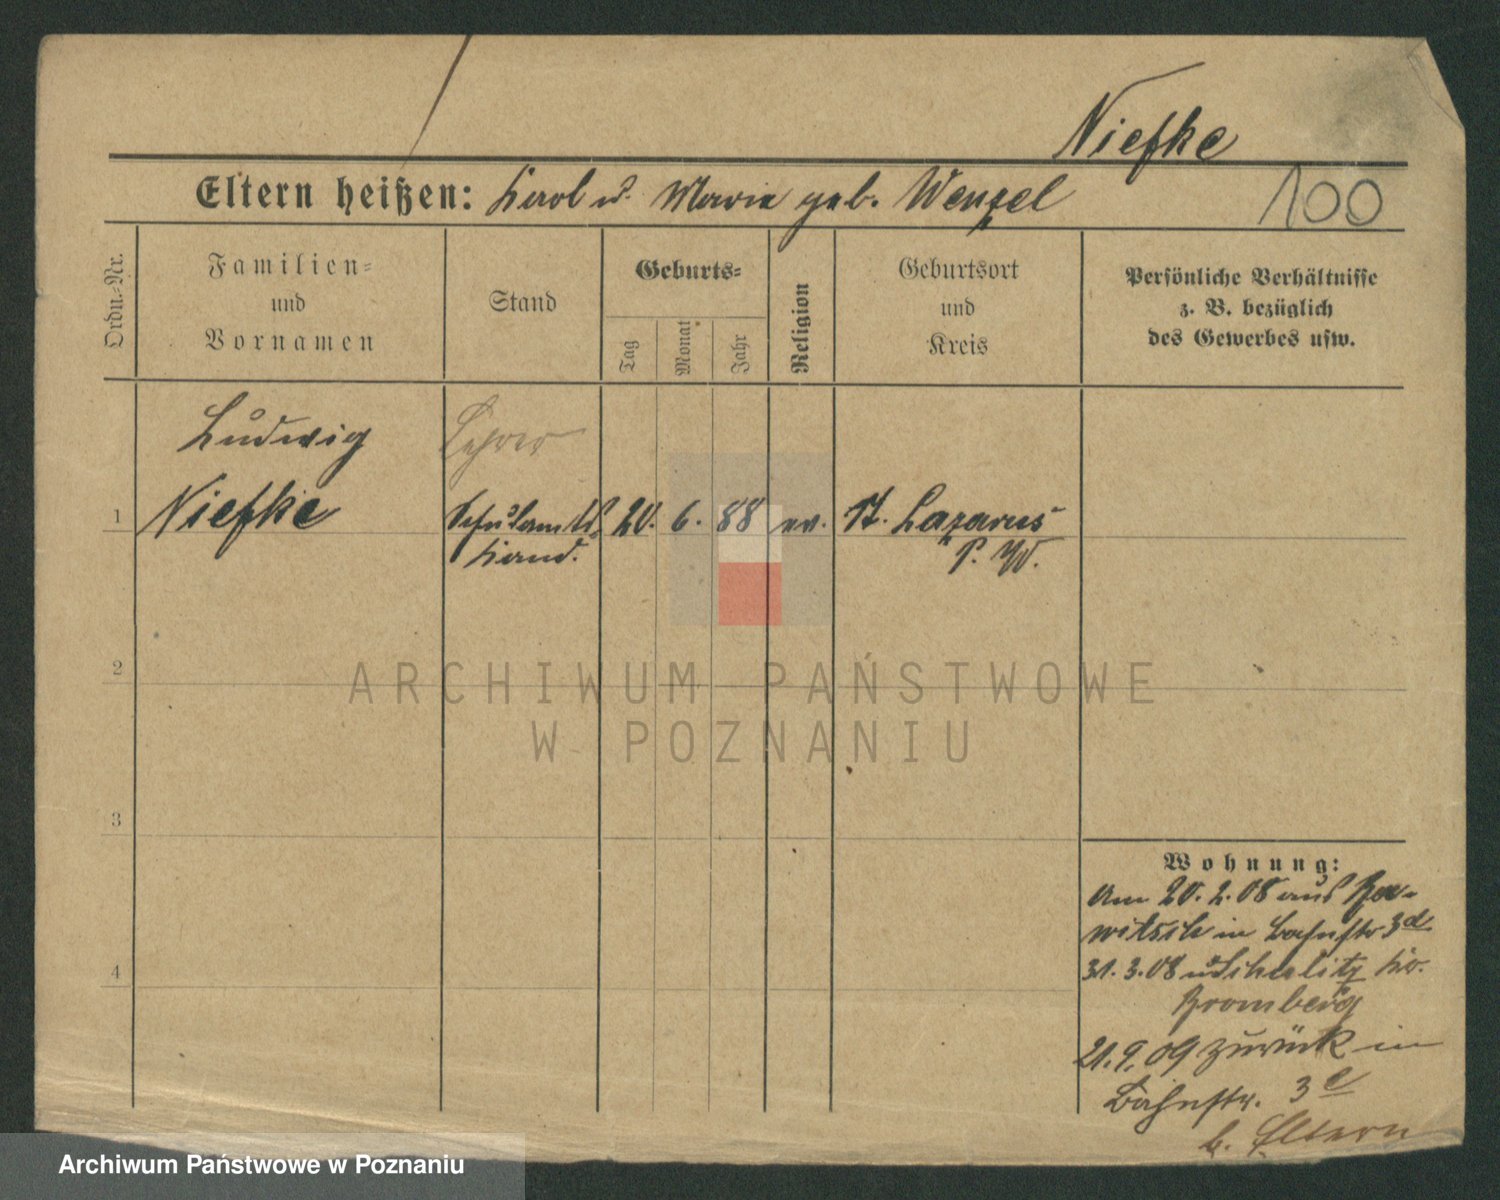 Niefke
Eltern heißen: Karl u. Maria geb. Wenzel
100
Ordn.-Nr.
Familien-
und
Vornamen
Stand
Geburts-
Tag
Monat
Jahr
Religion
Geburtsort
und
Kreis
Persönliche Verhältnisse
z. B. bezüglich
des Gewerbes usw.
Ludwig Lehrer
1 Niefke Schulamts 20. 6. 88 ev. St. Lazarus
Kand. P. W.
2
3
4
Wohnung:
Am 20. 2. 08 aus Ra-
witsch in Bahnstr 3d
31. 3. 08 n. Schulitz Kr.
Bromberg
21. 9. 09 zurück in
Bahnstr. 3e
b. Eltern
ARCHIWUM PAŃSTWOWE
W POZNANIU
Archiwum Państwowe w Poznaniu